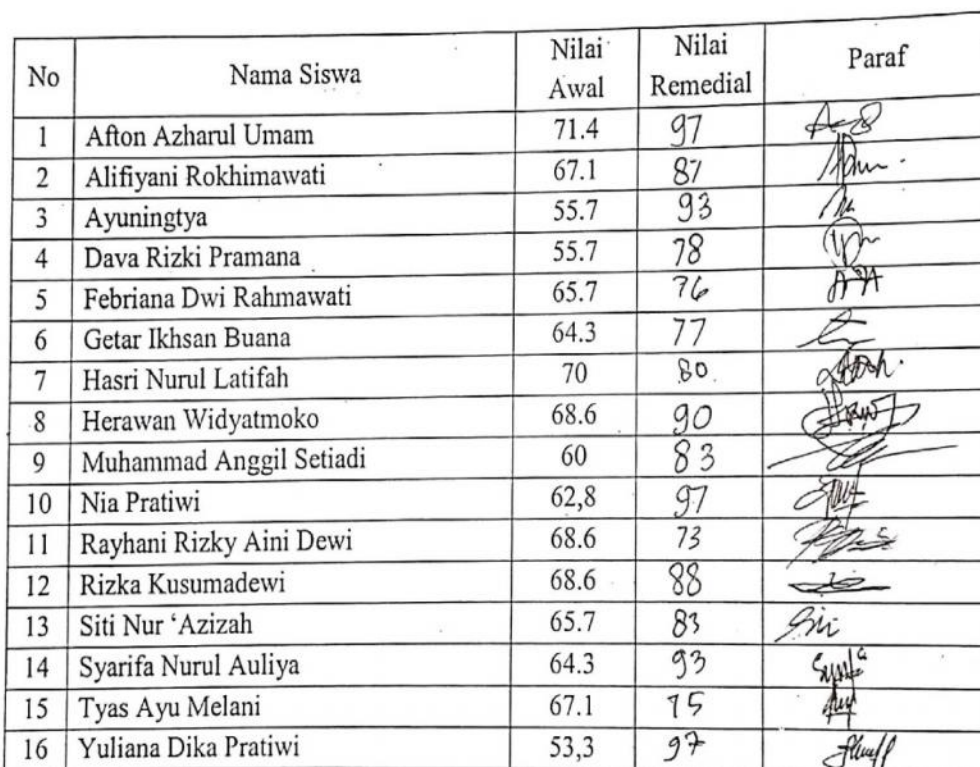 No Nama Siswa Nilai Awal Nilai Remedial Paraf
1 Afton Azharul Umam 71.4 97
2 Alifiyani Rokhimawati 67.1 87
3 Ayuningtya 55.7 93
4 Dava Rizki Pramana 55.7 78
5 Febriana Dwi Rahmawati 65.7 76
6 Getar Ikhsan Buana 64.3 77
7 Hasri Nurul Latifah 70 80
8 Herawan Widyatmoko 68.6 90
9 Muhammad Anggil Setiadi 60 83
10 Nia Pratiwi 62,8 97
11 Rayhani Rizky Aini Dewi 68.6 73
12 Rizka Kusumadewi 68.6 88
13 Siti Nur ‘Azizah 65.7 83
14 Syarifa Nurul Auliya 64.3 93
15 Tyas Ayu Melani 67.1 75
16 Yuliana Dika Pratiwi 53,3 97